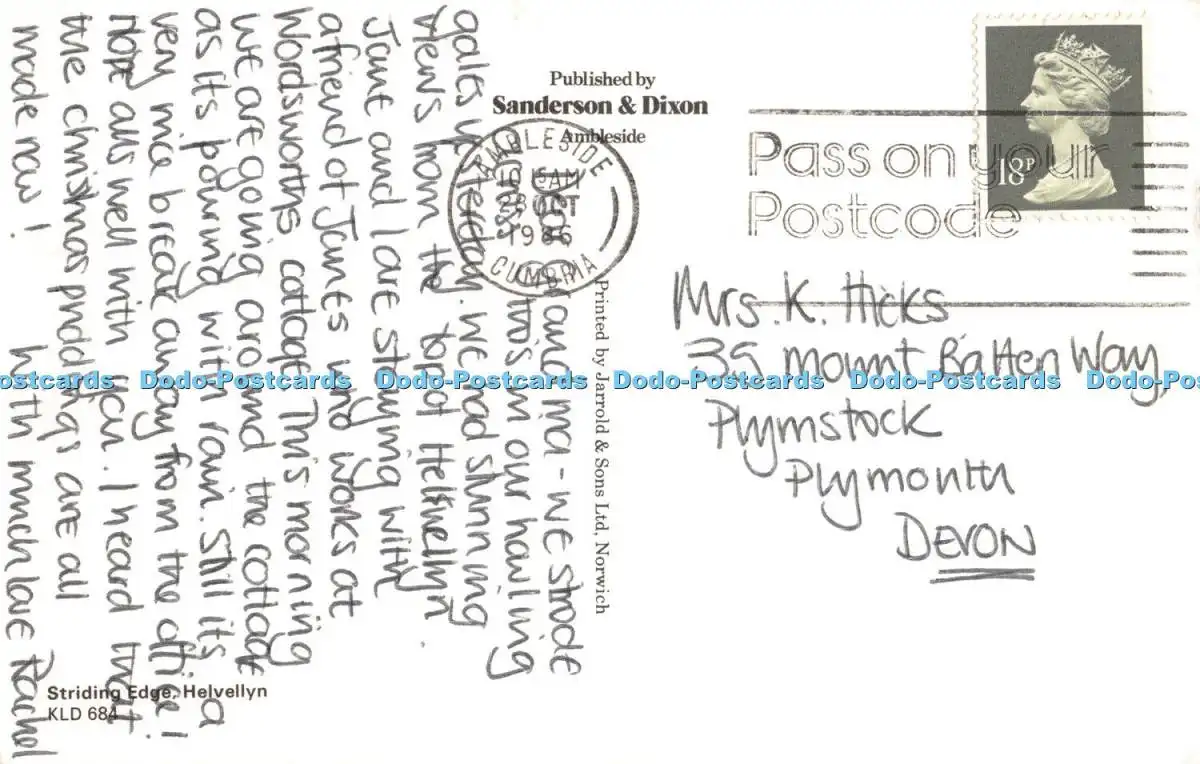 Published by
Sanderson & Dixon
Ambleside
AMBLESIDE
10 15AM
28 OCT
1986
CUMBRIA
Pass on your
Postcode
18P
Mrs. K. Hicks
39 Mount Batten Way,
Plymstock
Plymouth
DEVON
and ma - we strode
this in our howling
gales yesterday. We had stunning
views from the top of Helvellyn.
Jane and I are staying with
a friend of James who works at
Wordsworths cottage. This morning
we are going around the cottage
as its pouring with rain. Still its a
very nice break away from the office!
Hope alls well with you. I heard that
the christmas puddings are all
made now! With much love Rachel
Printed by Jarrold & Sons Ltd, Norwich
Striding Edge, Helvellyn
KLD 684
Dodo-Postcards Dodo-Postcards Dodo-Postcards Dodo-Postcards Dodo-Postcards